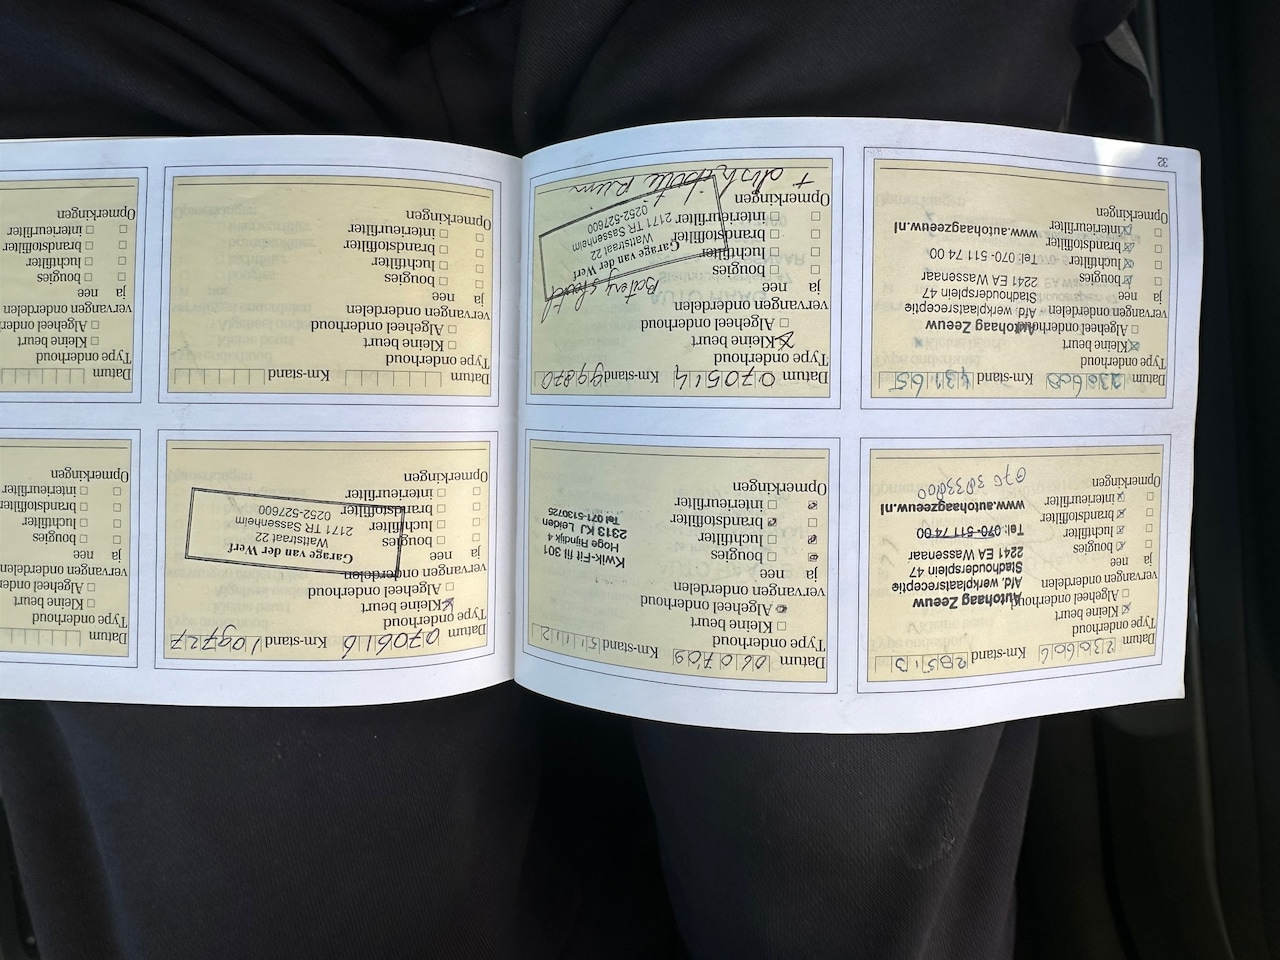 Datum 230606 Km-stand
Type onderhoud
Kleine beurt
Algeheel onderhoud
vervangen onderdelen
ja nee
bougies
luchtfilter
brandstoffilter
interieurfilter
Opmerkingen
Autohaag Zeeuw
Afd. werkplaatsreceptie
Stadhoudersplein 47
2241 EA Wassenaar
Tel: 070-511 74 00
www.autohaagzeeuw.nl
Datum 060709 Km-stand 51112
Type onderhoud
Kleine beurt
Algeheel onderhoud
vervangen onderdelen
ja nee
bougies
luchtfilter
brandstoffilter
interieurfilter
Opmerkingen
Kwik-Fit fil 301
Hoge Rijndijk
2313 KJ Leiden
Tel 071-5130725
Datum 070616 Km-stand 109727
Type onderhoud
Kleine beurt
Algeheel onderhoud
vervangen onderdelen
ja nee
bougies
luchtfilter
brandstoffilter
interieurfilter
Opmerkingen
Garage van der Werf
Wattstraat 22
2171 TR Sassenheim
0252-527600
Datum
Type onderhoud
Kleine beurt
Algeheel
vervangen onderdelen
ja nee
bougies
luchtfilter
brandstoffilter
interieurfilter
Opmerkingen
Datum 230608 Km-stand 43165
Type onderhoud
Kleine beurt
Algeheel onderhoud
vervangen onderdelen
ja nee
bougies
luchtfilter
brandstoffilter
interieurfilter
Opmerkingen
Autohaag Zeeuw
Afd. werkplaatsreceptie
Stadhoudersplein 47
2241 EA Wassenaar
Tel: 070-511 74 00
www.autohaagzeeuw.nl
32
Datum 070514 Km-stand 99870
Type onderhoud
Kleine beurt
Algeheel onderhoud
vervangen onderdelen
ja nee
bougies
luchtfilter
brandstoffilter
interieurfilter
Opmerkingen
Garage van der Werf
Wattstraat 22
2171 TR Sassenheim
0252-527600
+ distributie riem
Datum Km-stand
Type onderhoud
Kleine beurt
Algeheel onderhoud
vervangen onderdelen
ja nee
bougies
luchtfilter
brandstoffilter
interieurfilter
Opmerkingen
Datum
Type onderhoud
Kleine beurt
Algeheel
vervangen onderdelen
ja nee
bougies
luchtfilter
brandstoffilter
interieurfilter
Opmerkingen